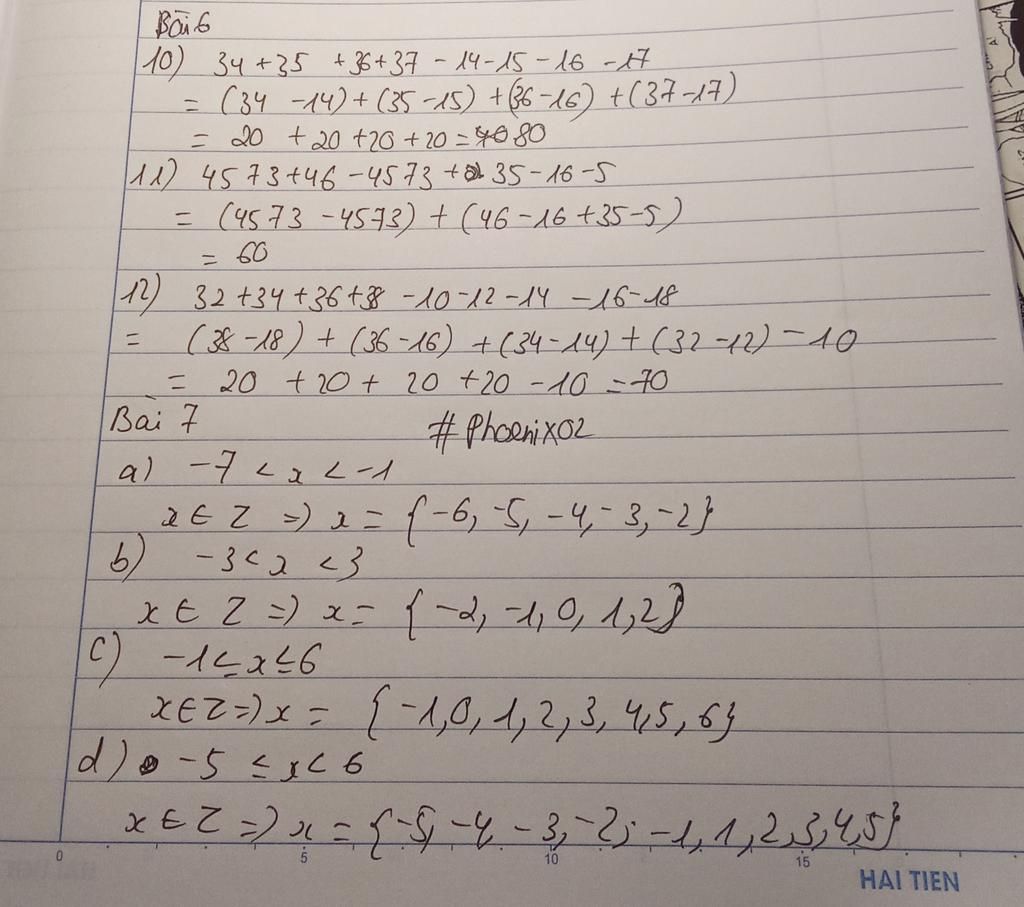 Bài 6
10) 34 + 35 + 36 + 37 - 14 - 15 - 16 - 17
= (34 - 14) + (35 - 15) + (36 - 16) + (37 - 17)
= 20 + 20 + 20 + 20 = 80
11) 4573 + 46 - 4573 + 35 - 16 - 5
= (4573 - 4573) + (46 - 16 + 35 - 5)
= 60
12) 32 + 34 + 36 + 38 - 10 - 12 - 14 - 16 - 18
= (38 - 18) + (36 - 16) + (34 - 14) + (32 - 12) - 10
= 20 + 20 + 20 + 20 - 10 = 70
Bài 7
#Phoenix02
a) -7 < x < -1
x ∈ Z => x = {-6, -5, -4, -3, -2}
b) -3 < x < 3
x ∈ Z => x = {-2, -1, 0, 1, 2}
c) -1 ≤ x ≤ 6
x ∈ Z => x = {-1, 0, 1, 2, 3, 4, 5, 6}
d) -5 ≤ x < 6
x ∈ Z => x = {-5, -4, -3, -2, -1, 1, 2, 3, 4, 5}
0 5 10 15
HAI TIEN